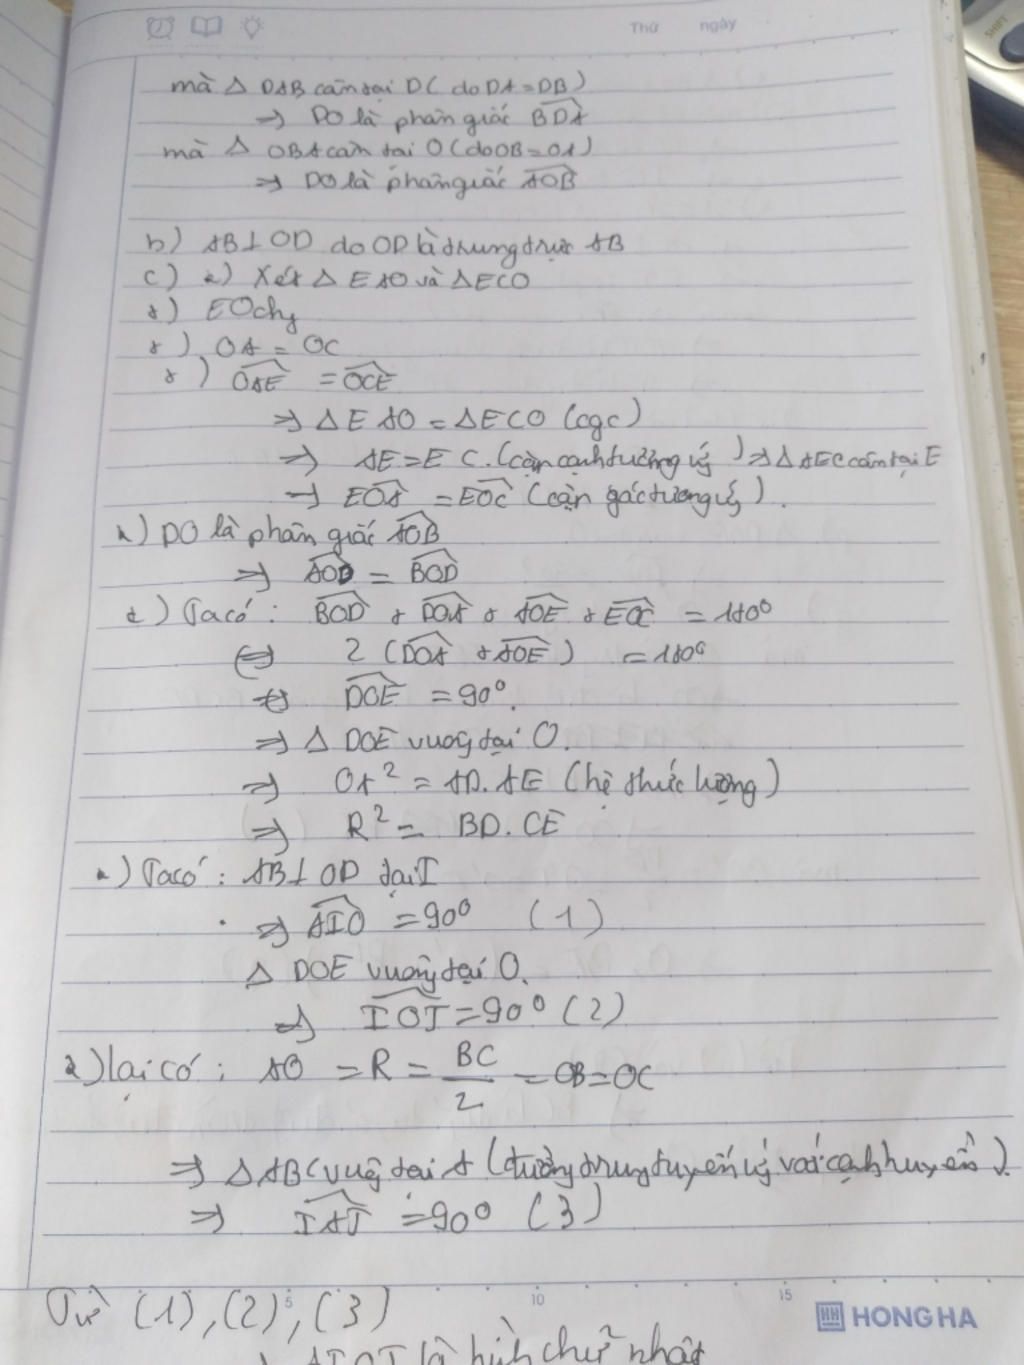 Thứ ngày
SHIFT
mà Δ DAB cân tại D ( do DA = DB )
=> DO là phân giác BDA
mà Δ OBA cân tại O ( do OB = OA )
=> DO là phân giác AOB
b) AB ⊥ OD do OD là trung trực AB
c) Xét Δ EAO và Δ ECO
+) EO chg
+) OA = OC
+) OAE = OCE
=> Δ EAO = Δ ECO (cgc)
=> AE = EC. (cặn cạnh tương ứ) => Δ AEC cân tại E
=> EOA = EOC (cặn góc tương ứ).
+) DO là phân giác AOB
=> AOD = BOD
+) Ta có : BOD + DOA + AOE + EOC = 180°
<=> 2 (DOA + AOE) = 180°
<=> DOE = 90°.
=> Δ DOE vuog tại O.
=> OA² = AD. AE (hệ thức lượng)
=> R² = BD. CE
+) Ta có : AB ⊥ OD tại I
=> AIO = 90° (1)
Δ DOE vuông tại O.
=> IOJ = 90° (2)
+) lại có : AO = R = BC/2 = OB = OC
=> Δ ABC vuôg tại A (đường trung tuyến ứ với cạnh huyền).
=> IAJ = 90° (3)
Từ (1), (2), (3)
5 10 15
HONG HA
AIOJ là hình chữ nhật